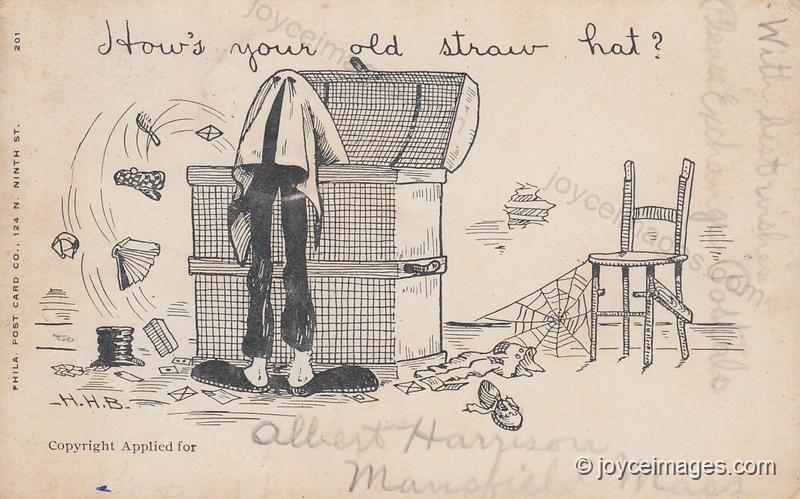 How's your old straw hat?
201
PHILA. POST CARD CO., 124 N. NINTH ST.
With best wishes
Please Exchange
Postals
-H.H.B.-
Copyright Applied for
Albert Harrison
Mansfield, Mass
joyceimages.com
joyceimages.com
© joyceimages.com